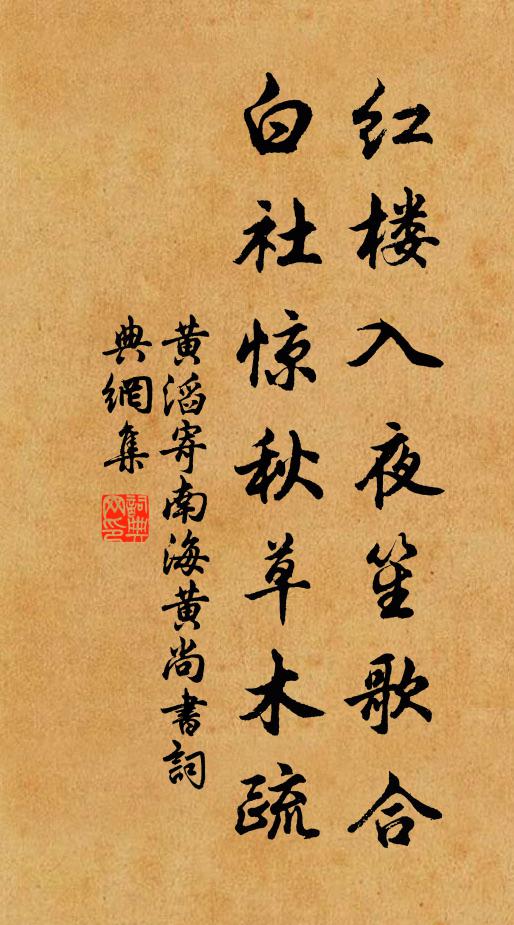 红楼入夜笙歌合
白社惊秋草木疏
黄滔寄南海黄尚书詞
典網集
詞典
网印